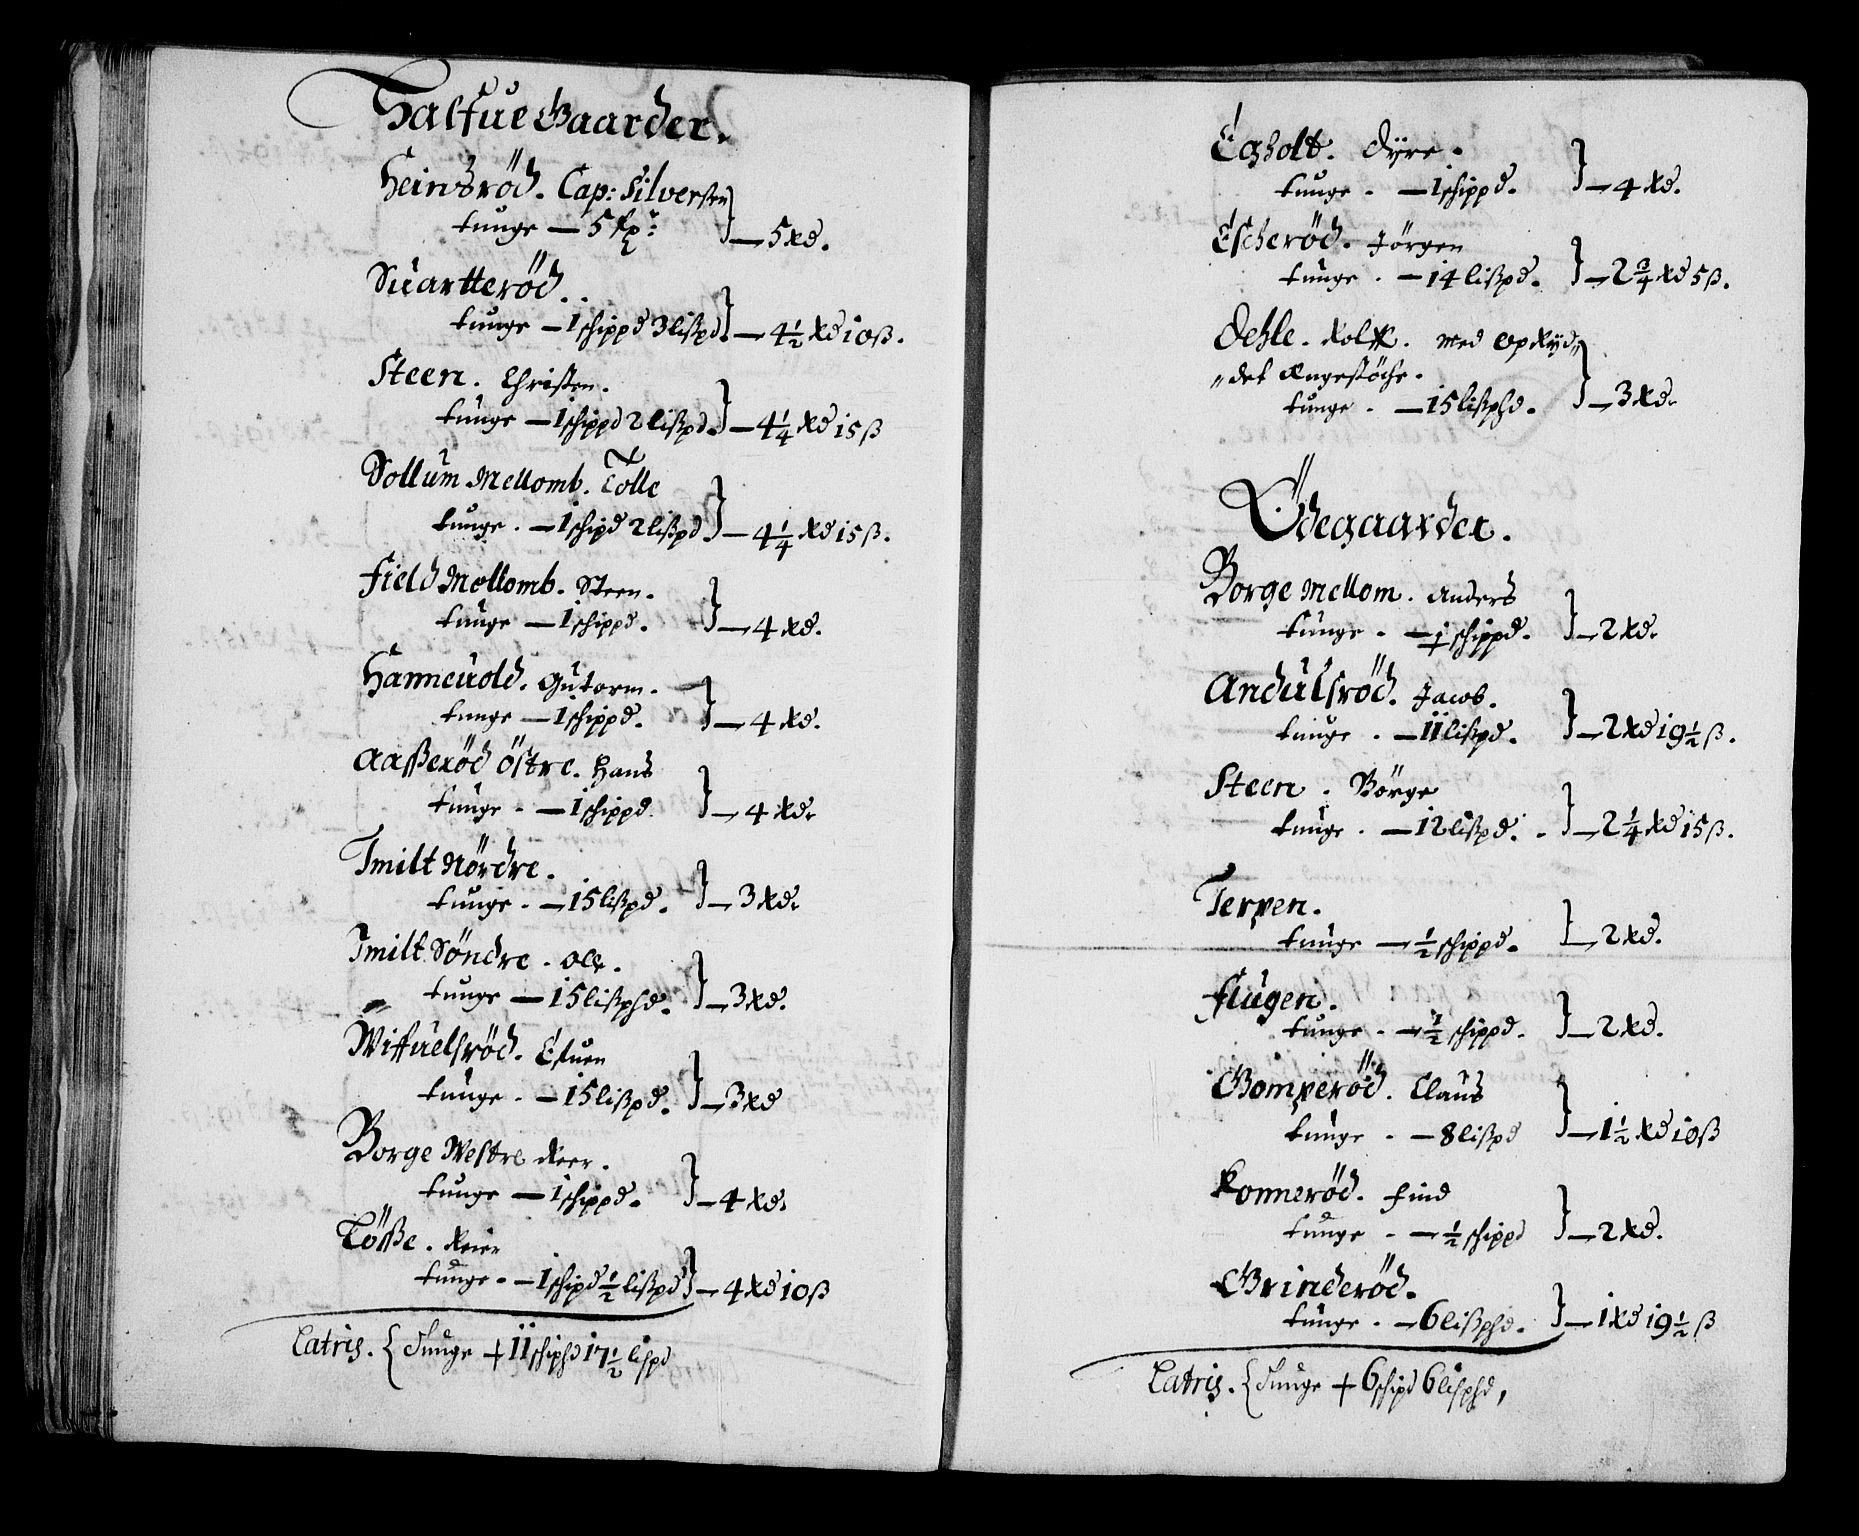 Halfue Gaarder.
Heinsröd. Cap: Silversten
tunge — 5 } — 5 Rd.
Suartteröd.
tunge — 1 schippd 3 lißpd. } — 4 1/2 Rd 10 ß.
Steen. Christen.
tunge — 1 schippd 2 lißpd. } — 4 1/4 Rd 15 ß
Sollum Mellomb. Tolle
tunge. — 1 schipd 2 lißpd. } — 4 1/4 Rd 15 ß.
Field Mellomb. Steen.
tunge — 1 schippd. } — 4 Rd.
Hanneuold. Gutorm.
tunge — 1 schippd. } — 4 Rd.
Aaßeröd östre. Hans
tunge. — 1 schippd } — 4 Rd.
Tmilt Nördre.
tunge. — 15 lißpd. } — 3 Rd.
Tmilt Söndre. Ole.
tunge — 15 lißphd. } — 3 Rd.
Wiffuelsröd. Esuen
tunge. — 15 lißpd. } — 3 Rd
Borge Westre Reer.
tunge — 1 schippd. } — 4 Rd.
Töße. Reier
tunge. — 1 schipd 1/2 lißpd } — 4 Rd 10 ß
Latris. { Tunge + 11 schiphd 17 1/2 lispd
Egholt. Dyre.
tunge. — 1 schippd. } — 4 Rd.
Escheröd. Jörgen
tunge. — 14 lißpd. } — 2 3/4 Rd 5 ß.
Oehle. Rolff. med opRyd„
„det Engestöche.
tunge. — 15 lißphd. } — 3 Rd.
Ödegaarder.
Borge Mellom. Anders
tunge. — 1/2 schippd. } — 2 Rd.
Andulsröd. Jacob.
tunge. — 11 lißpd. } — 2 Rd 19 1/2 ß.
Steen. Börge
tunge. — 12 lißpd. } — 2 1/4 Rd 15 ß.
Terpen.
tunge — 1/2 schippd. } — 2 Rd.
Flugen.
tunge. — 1/2 schippd. } — 2 Rd.
Gomperöd. Claus
tunge. — 8 lißpd } — 1 1/2 Rd 10 ß
Konneröd. Find
tunge. — 1/2 schippd } — 2 Rd.
Grinderöd.
tunge. — 6 lißphd. } — 1 Rd 19 1/2 ß
Latris. { Tunge + 6 schipd 6 lisphd,